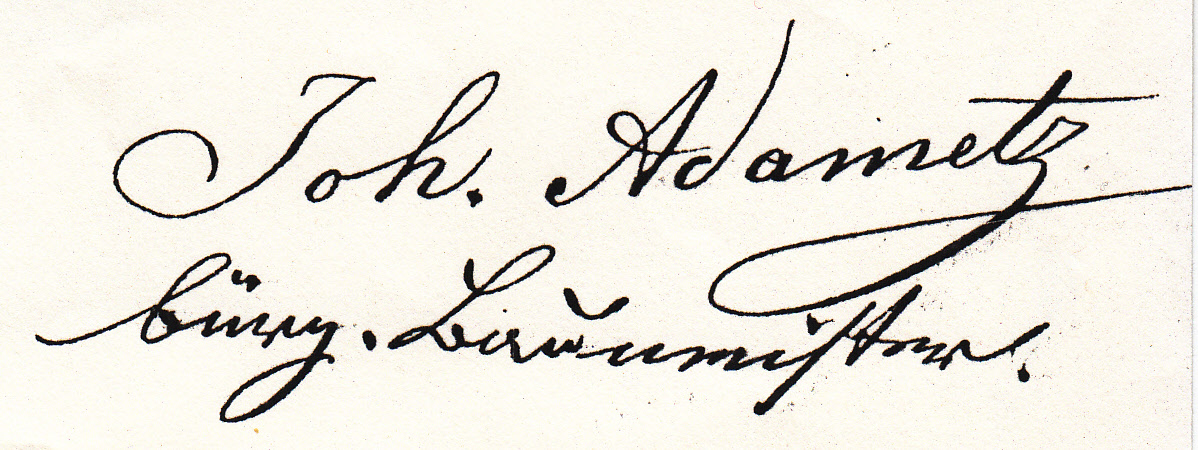 Joh. Adametz
bürg. Baumeister.